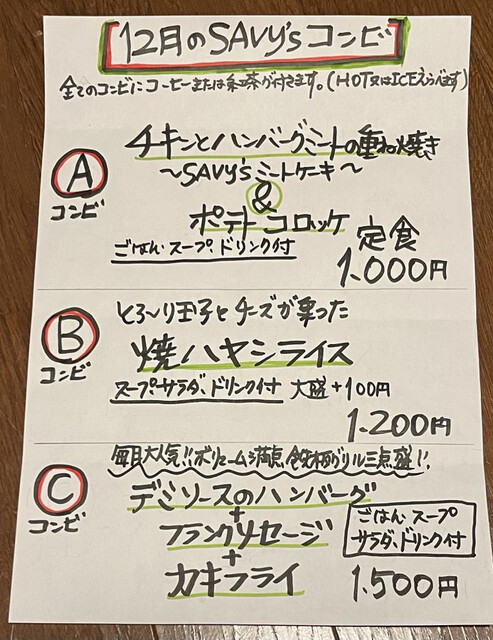 12月のSAVy'sコンビ
全てのコンビにコーヒーまたは紅茶が付きます。(HOT又はICEえらべます)
A
コンビ
チキンとハンバーグミートの重ね焼き
〜SAVy'sミートケーキ〜
&
ポテトコロッケ
ごはん、スープ、ドリンク付
定食
1.000円
B
コンビ
とろ〜り玉子とチーズが乗った
焼ハヤシライス
スープ・サラダ、ドリンク付
大盛+100円
1.200円
C
コンビ
毎日大人気!!ボリューム満点、鉄板グリル三点盛!!
デミソースのハンバーグ
+
フランクソーセージ
+
カキフライ
ごはん、スープ
サラダ、ドリンク付
1.500円